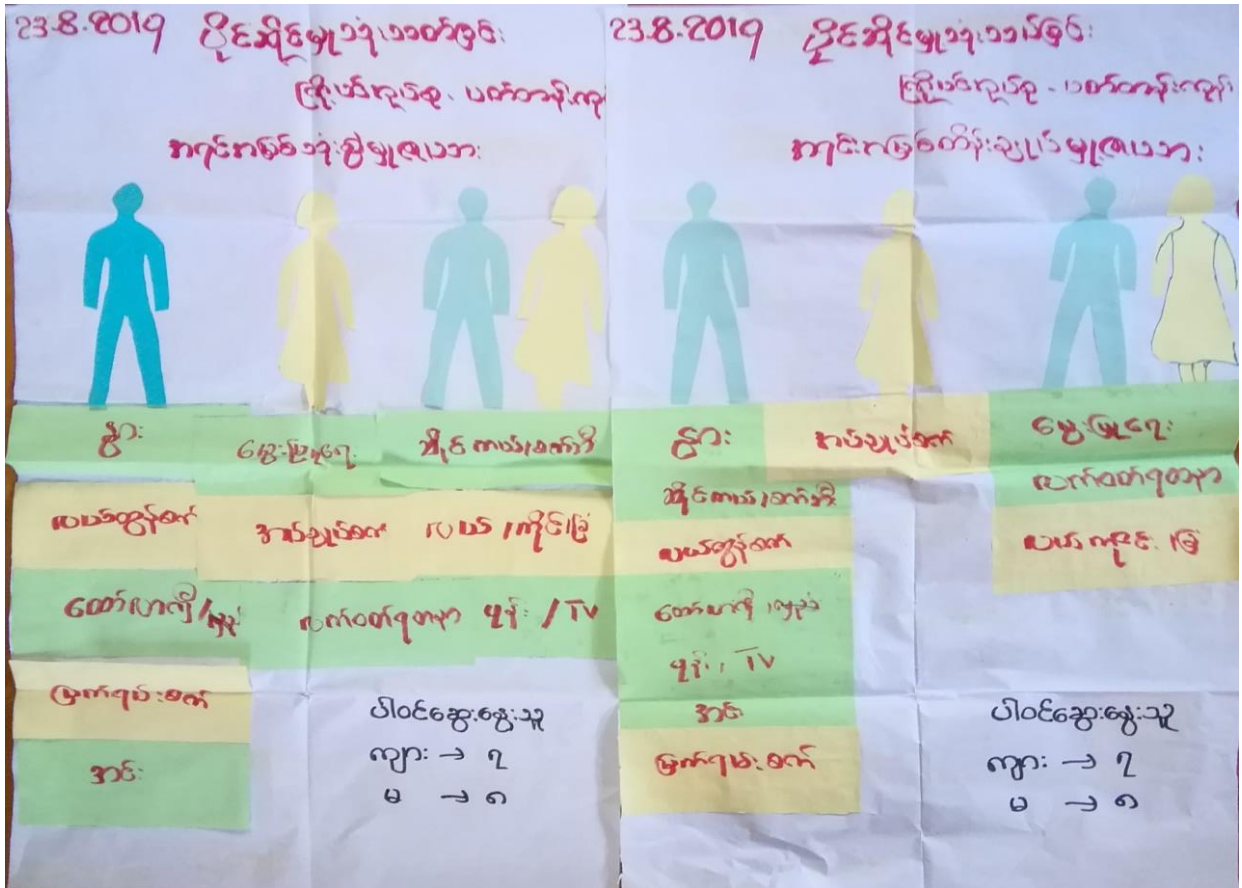 23.8.2019 ပိုင်ဆိုင်မှုသုံးသပ်ခြင်း
အရင်းအမြစ်သုံးစွဲမှုဇယား
နွား
မွေးမြူရေး
ဆိုင်ကယ်/စက်ဘီ
လယ်ထွန်စက်
အပ်ချုပ်စက်
လယ်/ကိုင်း/ခြံ
ထော်လာဂျီ/လှည်း
လက်ဝတ်ရတနာ
ဖုန်း / TV
မြက်ရမ်းစက်
အင်း
ပါဝင်ဆွေးနွေးသူ
ကျား → ၇
မ → ၈
23.8.2019 ပိုင်ဆိုင်မှုသုံးသပ်ခြင်း
အရင်းအမြစ်ထိန်းချုပ်မှုဇယား
နွား
အပ်ချုပ်စက်
မွေးမြူရေး
ဆိုင်ကယ်/စက်ဘီး
လက်ဝတ်ရတနာ
လယ်ထွန်စက်
လယ် ကိုင်း ခြံ
ထော်လာဂျီ/လှည်း
ဖုန်း, TV
အင်း
မြက်ရမ်းစက်
ပါဝင်ဆွေးနွေးသူ
ကျား → ၇
မ → ၈